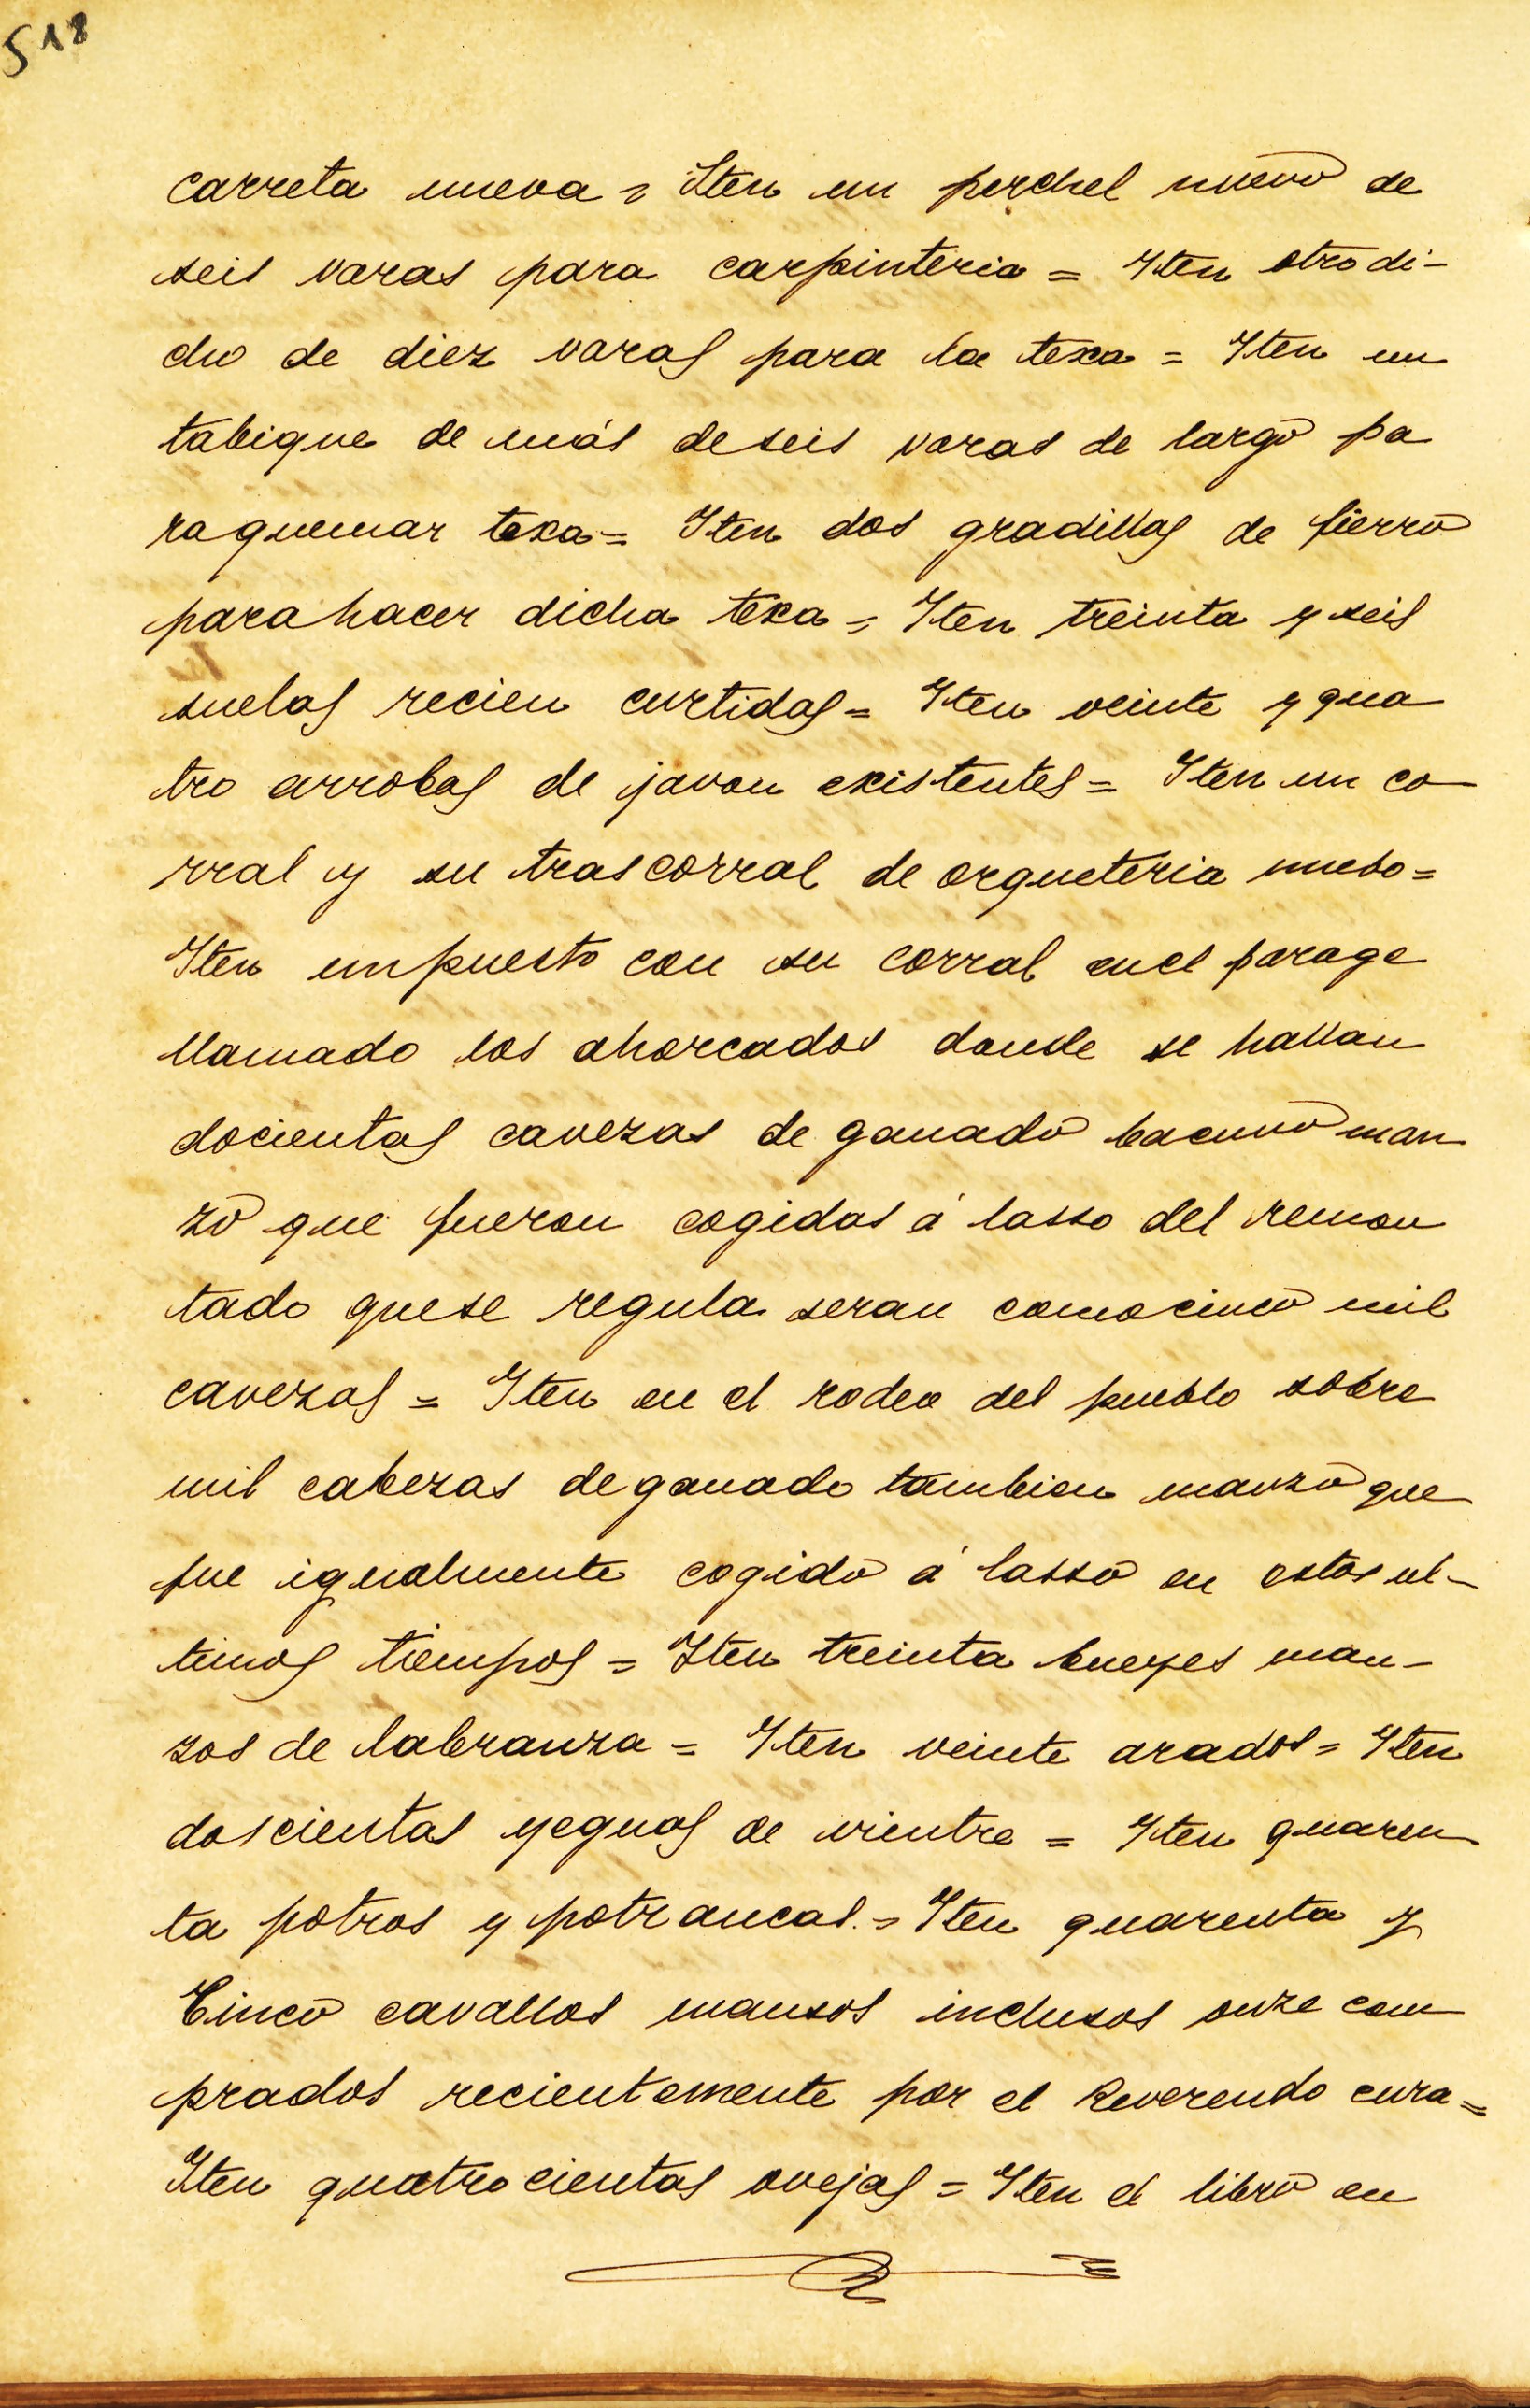 518
carreta nueva = Iten un perchel nuevo de
seis varas para carpinteria = Iten otro di-
cho de diez varas para la texa = Iten un
tabique de más de seis varas de largo pa
ra quemar texa = Iten dos gradillas de fierro
para hacer dicha texa = Iten treinta y seis
suelas recien curtidas = Iten veinte y qua
tro arrobas de javon existentes = Iten un co
rral y su trascorral de orqueteria nuebo =
Iten un puesto con su corral en el parage
llamado los ahorcados donde se hallan
docientas cavezas de ganado bacuno man
zo que fueron cogidas á lasso del remon
tado que se regula seran como cinco mil
cavezas = Iten en el rodeo del pueblo sobre
mil cabezas de ganado tambien manzo que
fue igualmente cogido á lasso en estos ul-
timos tiempos = Iten treinta bueyes man-
zos de labranza = Iten veinte arados = Iten
doscientas yeguas de vientre = Iten quaren
ta potros y potrancas. = Iten quarenta y
Cinco cavallos mansos inclusos onze com
prados recientemente por el Reverendo cura =
Iten quatrocientas ovejas = Iten el libro en